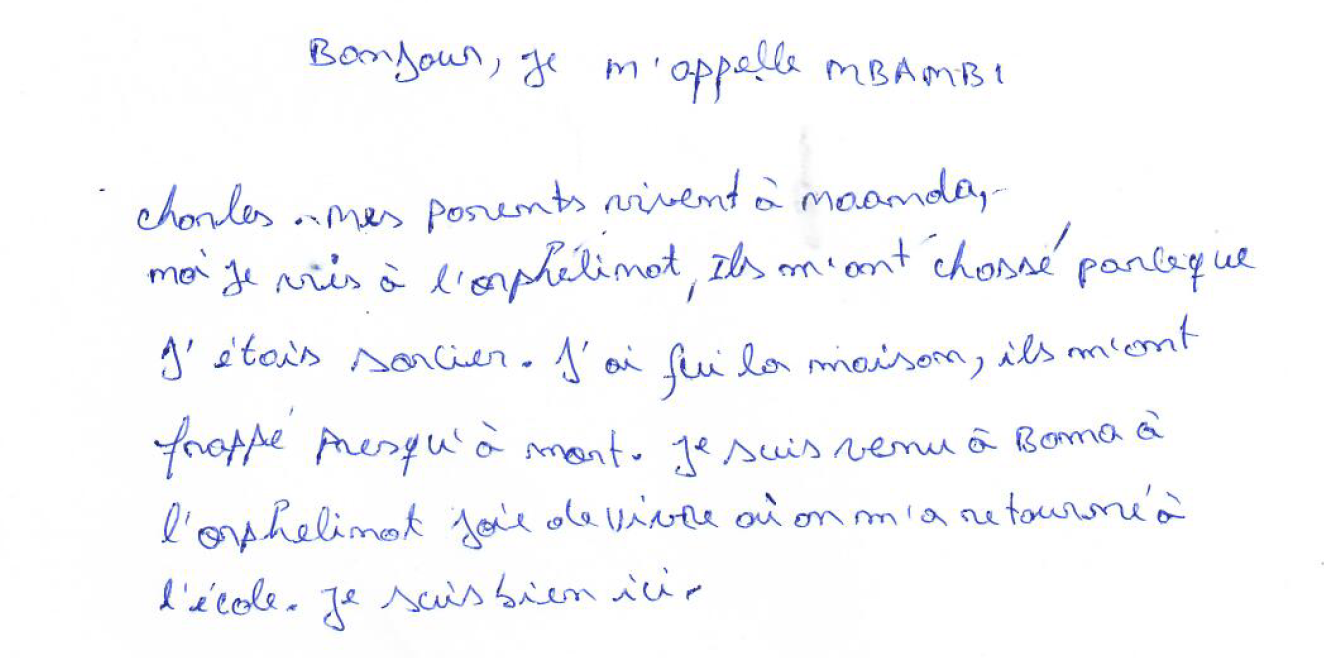 Bonjour, je m'appelle MBAMBI
charles. mes parents vivent à moanda,
moi je vis à l'orphélinat, Ils m'ont chassé parceque
J'étais sorcier. J'ai fui la maison, ils m'ont
frappé presqu'à mort. Je suis venu à Boma à
l'orphelinat joie de vivre où on m'a retourné à
l'école. Je suis bien ici.